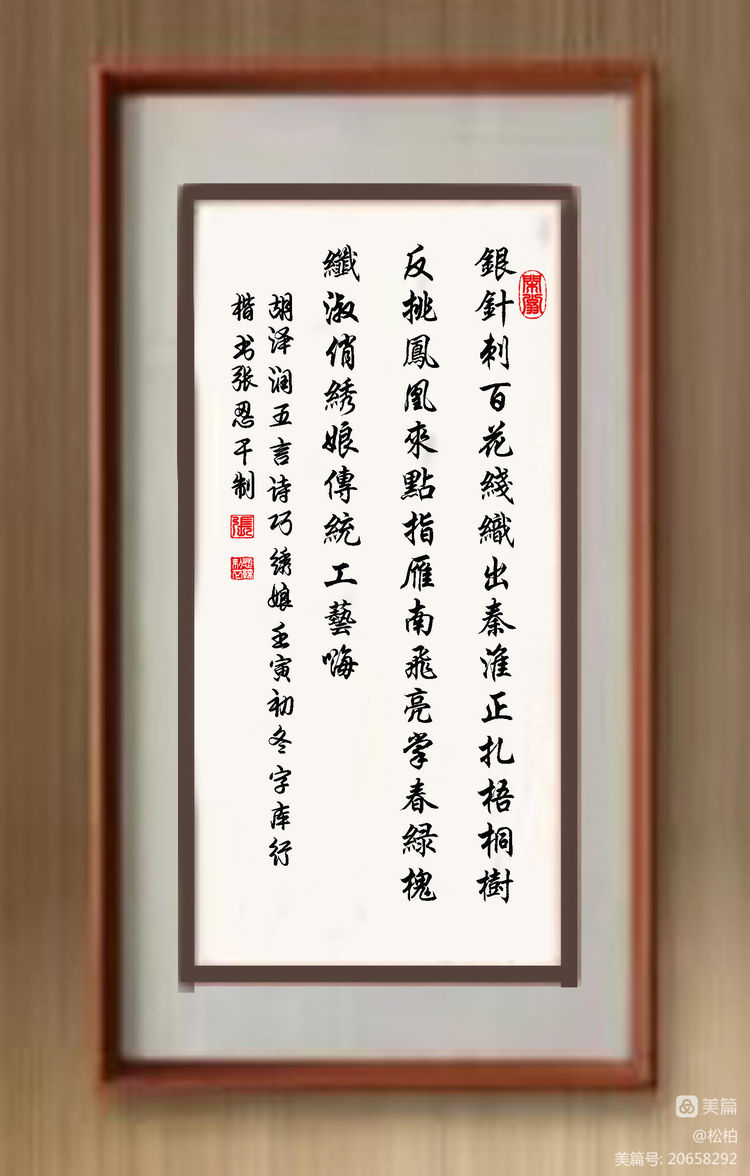 銀針刺百花綫織出秦淮正扎梧桐樹
反挑鳳凰來點指雁南飛亮掌春緑槐
纖淑俏綉娘傳統工藝嗨
胡泽润五言诗巧绣娘壬寅初冬字库行
楷书张忍干制
張
美篇
@松柏
美篇号: 20658292